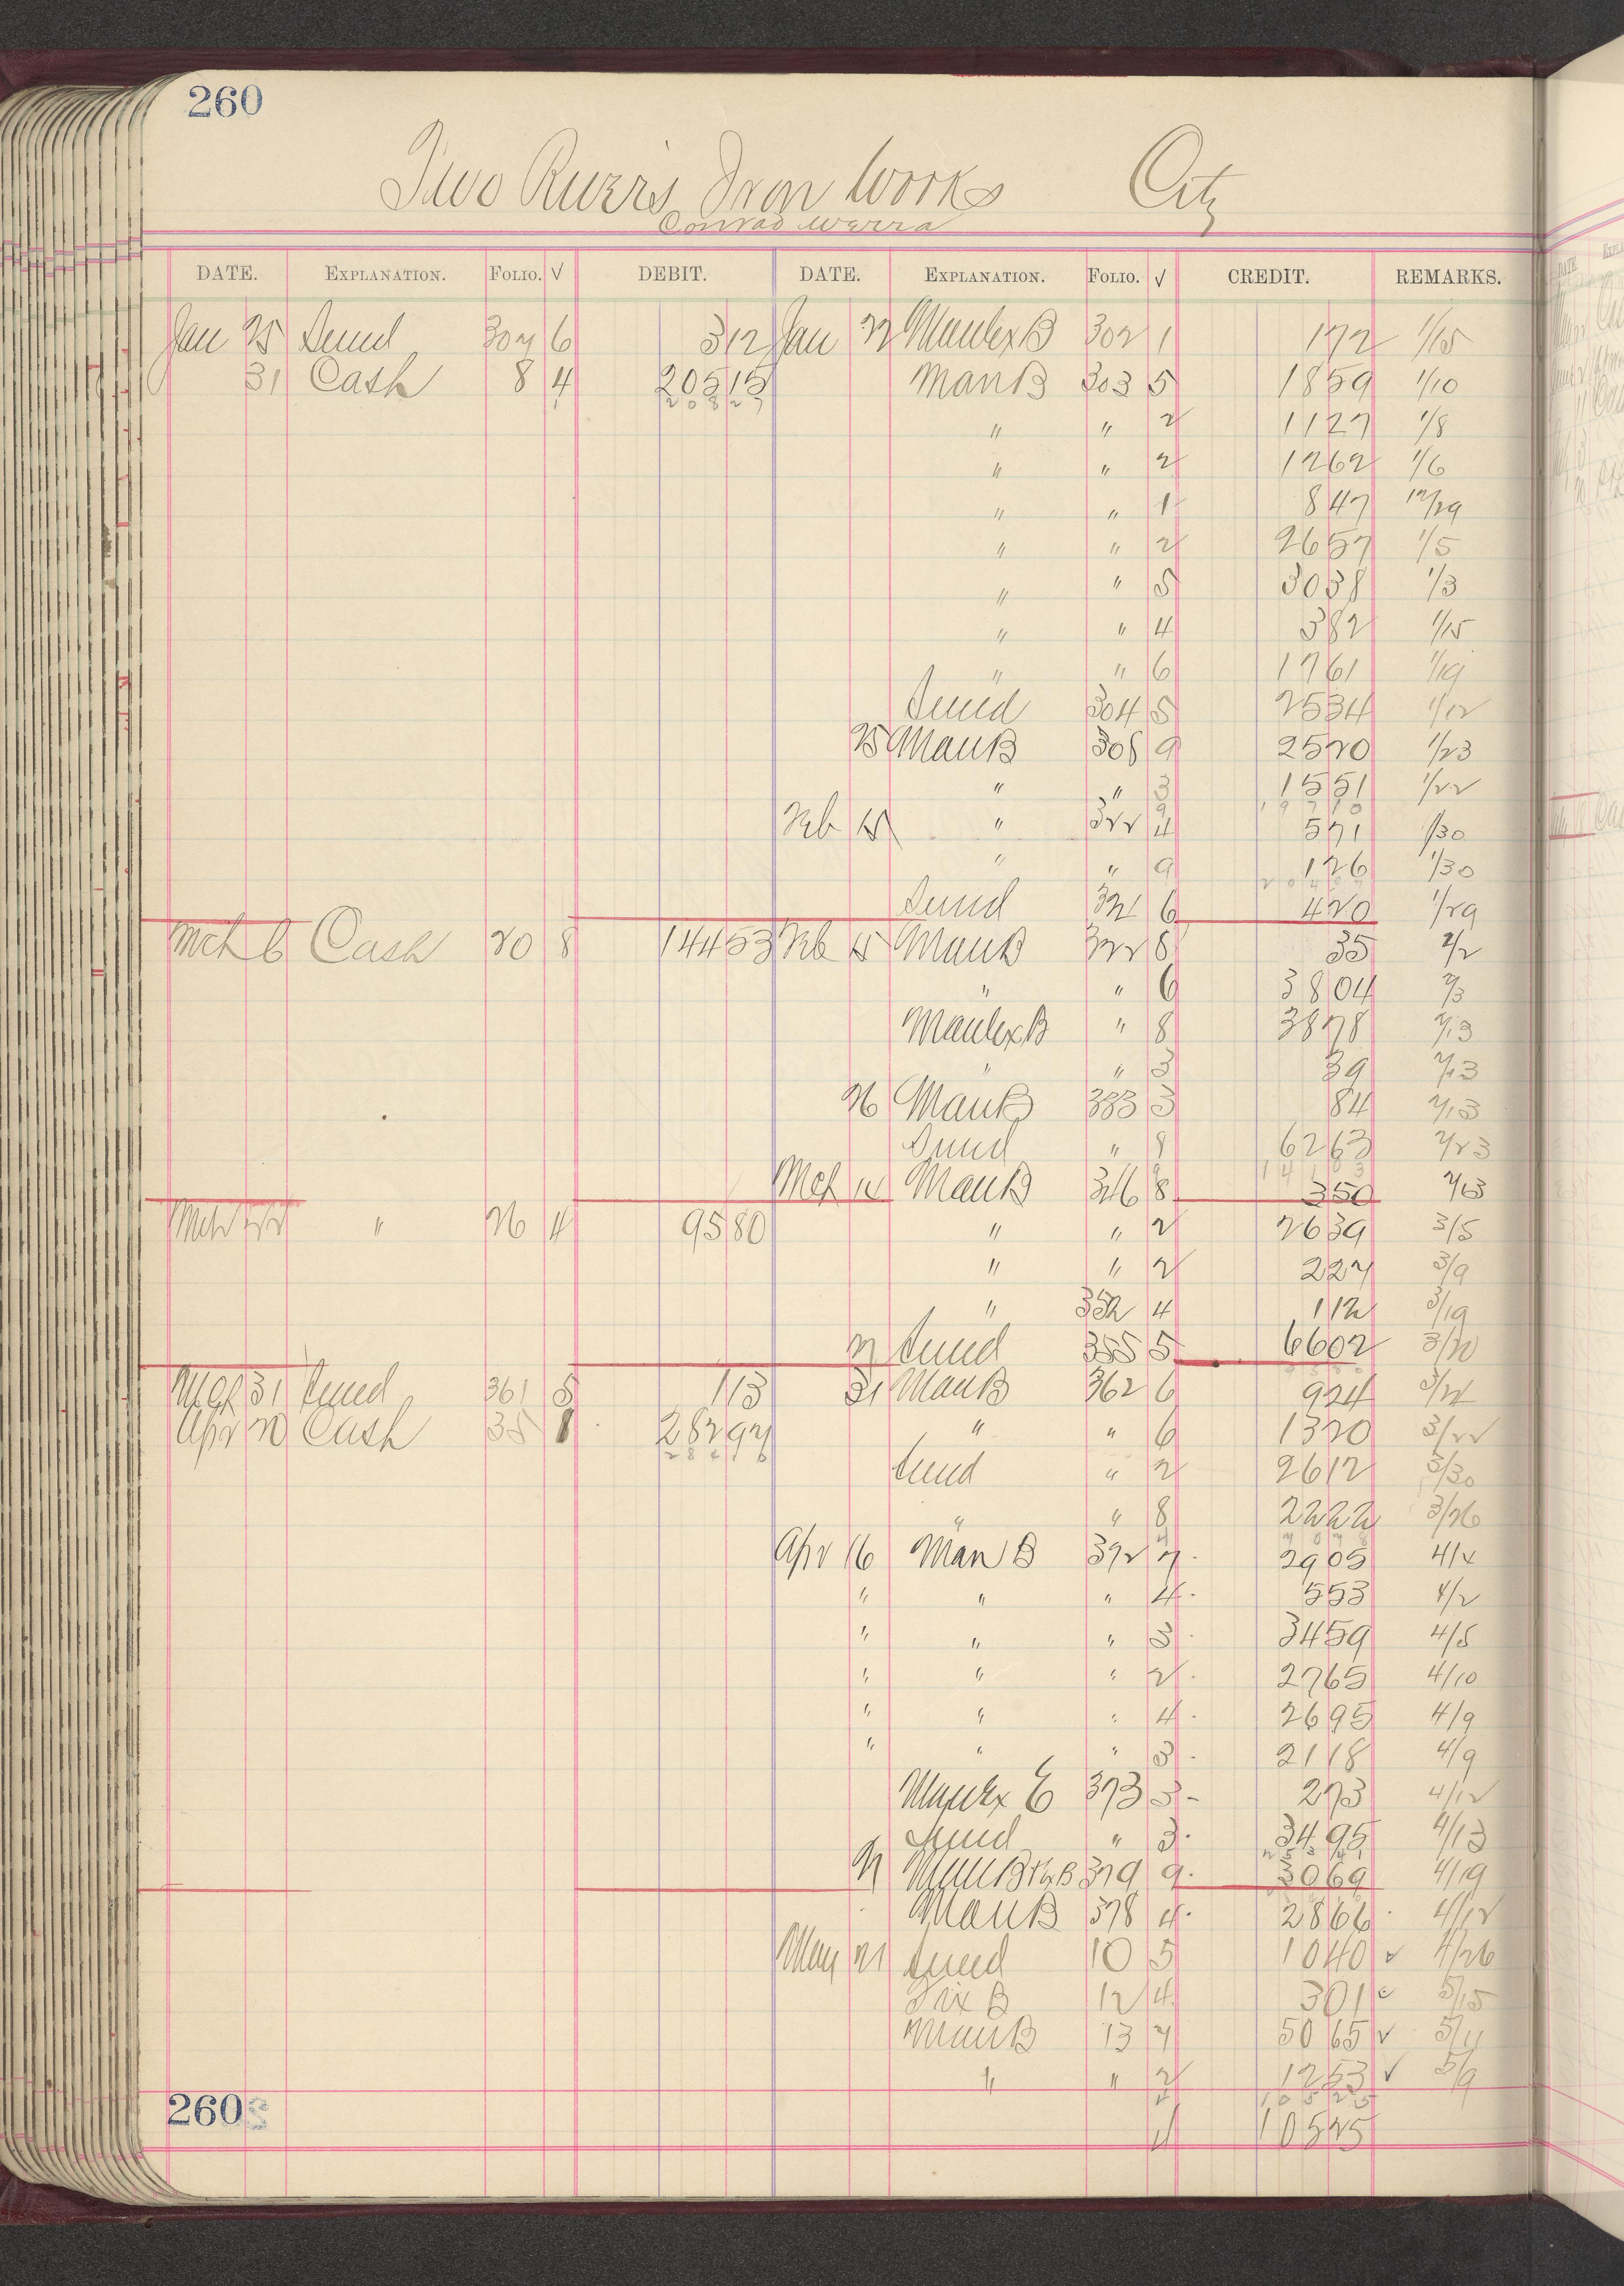 260
Two Rivers Iron Works City
Conrad Werra
DATE. EXPLANATION. FOLIO. √ DEBIT. DATE. EXPLANATION. FOLIO. √ CREDIT. REMARKS.
Jan 25 Sund 307 6 312 Jan 22 ManlexB 302 1 172 1/15
31 Cash 8 4 20515 ManB 303 5 1859 1/10
20827 " " 2 1127 1/8
" " 2 1262 1/6
" " 1 847 12/29
" " 2 2657 1/5
" " 5 3038 1/3
" " 4 382 1/15
" " 6 1761 1/19
Sund 304 5 2534 1/12
25 ManB 308 9 2520 1/23
" " 3 1551 1/22
Feb 15 " 322 4 571 1/30
" " 9 126 1/30
Sund 321 6 420 1/29
Mch 6 Cash 20 8 14453 Feb 15 ManB 322 8 35 2/2
" " 6 3804 2/3
ManlexB " 8 3878 2/13
" " 3 39 2/13
26 ManB 333 3 84 2/13
Sund " 8 6263 2/23
Mch 12 ManB 346 8 350 2/13
Mch 22 " 26 4 9580 " " 2 2639 3/5
" " 2 227 3/9
" 352 4 112 3/19
27 Sund 355 5 6602 3/20
Mch 31 Sund 361 5 113 31 ManB 362 6 924 3/24
Apr 20 Cash 35 1 28297 " " 6 1320 3/22
28410 Sund " 2 2612 3/30
" " 8 2222 3/26
Apr 16 Man B 372 7 2905 4/4
" " " 4 553 4/2
" " " 3 3459 4/5
" " " 2 2765 4/10
" " " 4 2695 4/9
" " " 3 2118 4/9
373 3 273 4/12
Sund " 3 3495 4/13
379 9 3069 4/19
ManB 378 4 2866 4/12
May 21 Sund 10 5 1040 ✓ 4/26
Six B 12 4 301 5/15
ManB 13 7 5065 ✓ 5/11
" " 2 1253 ✓ 5/9
10525
4 10525
260